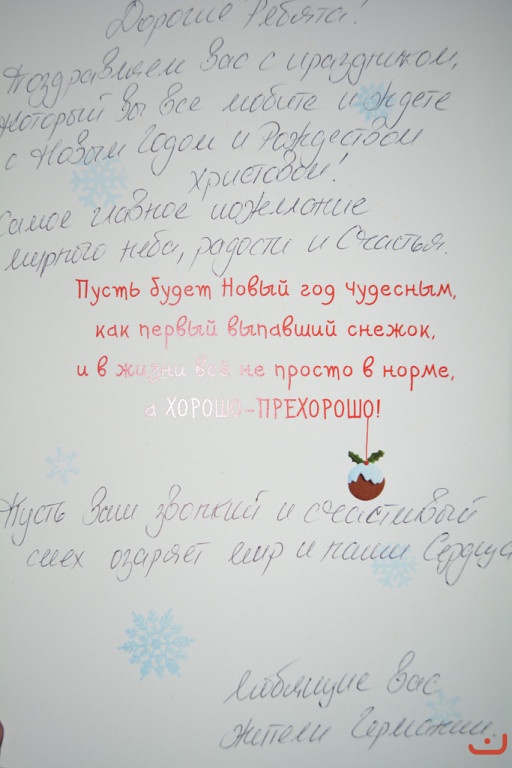 Дорогие Ребята!
Поздравляем Вас с праздником,
который Вы все любите и ждете
с Новым Годом и Рождеством
Христовом!
Самое главное пожелание
мирного неба, радости и Счастья.
Пусть будет Новый год чудесным,
как первый выпавший снежок,
и в жизни всё не просто в норме,
а ХОРОШО-ПРЕХОРОШО!
Пусть Ваш звонкий и счастливый
смех озаряет мир и наши Сердца
Любящие Вас
жители Германии.